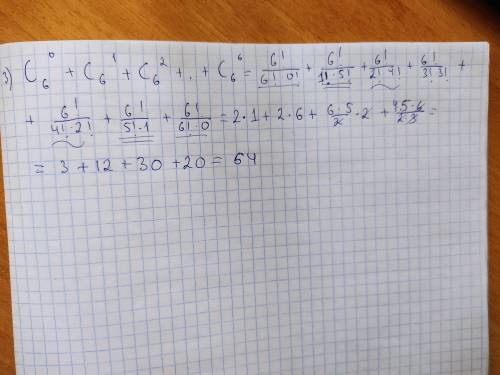 3) C₆⁰ + C₆¹ + C₆² + .. + C₆⁶ = 6!/(6!·0!) + 6!/(1!·5!) + 6!/(2!·4!) + 6!/(3!·3!) +
+ 6!/(4!·2!) + 6!/(5!·1) + 6!/(6!·0) = 2·1 + 2·6 + (6·5)/2·2 + (4·5·6)/(2·3) =
= 3 + 12 + 30 + 20 = 64